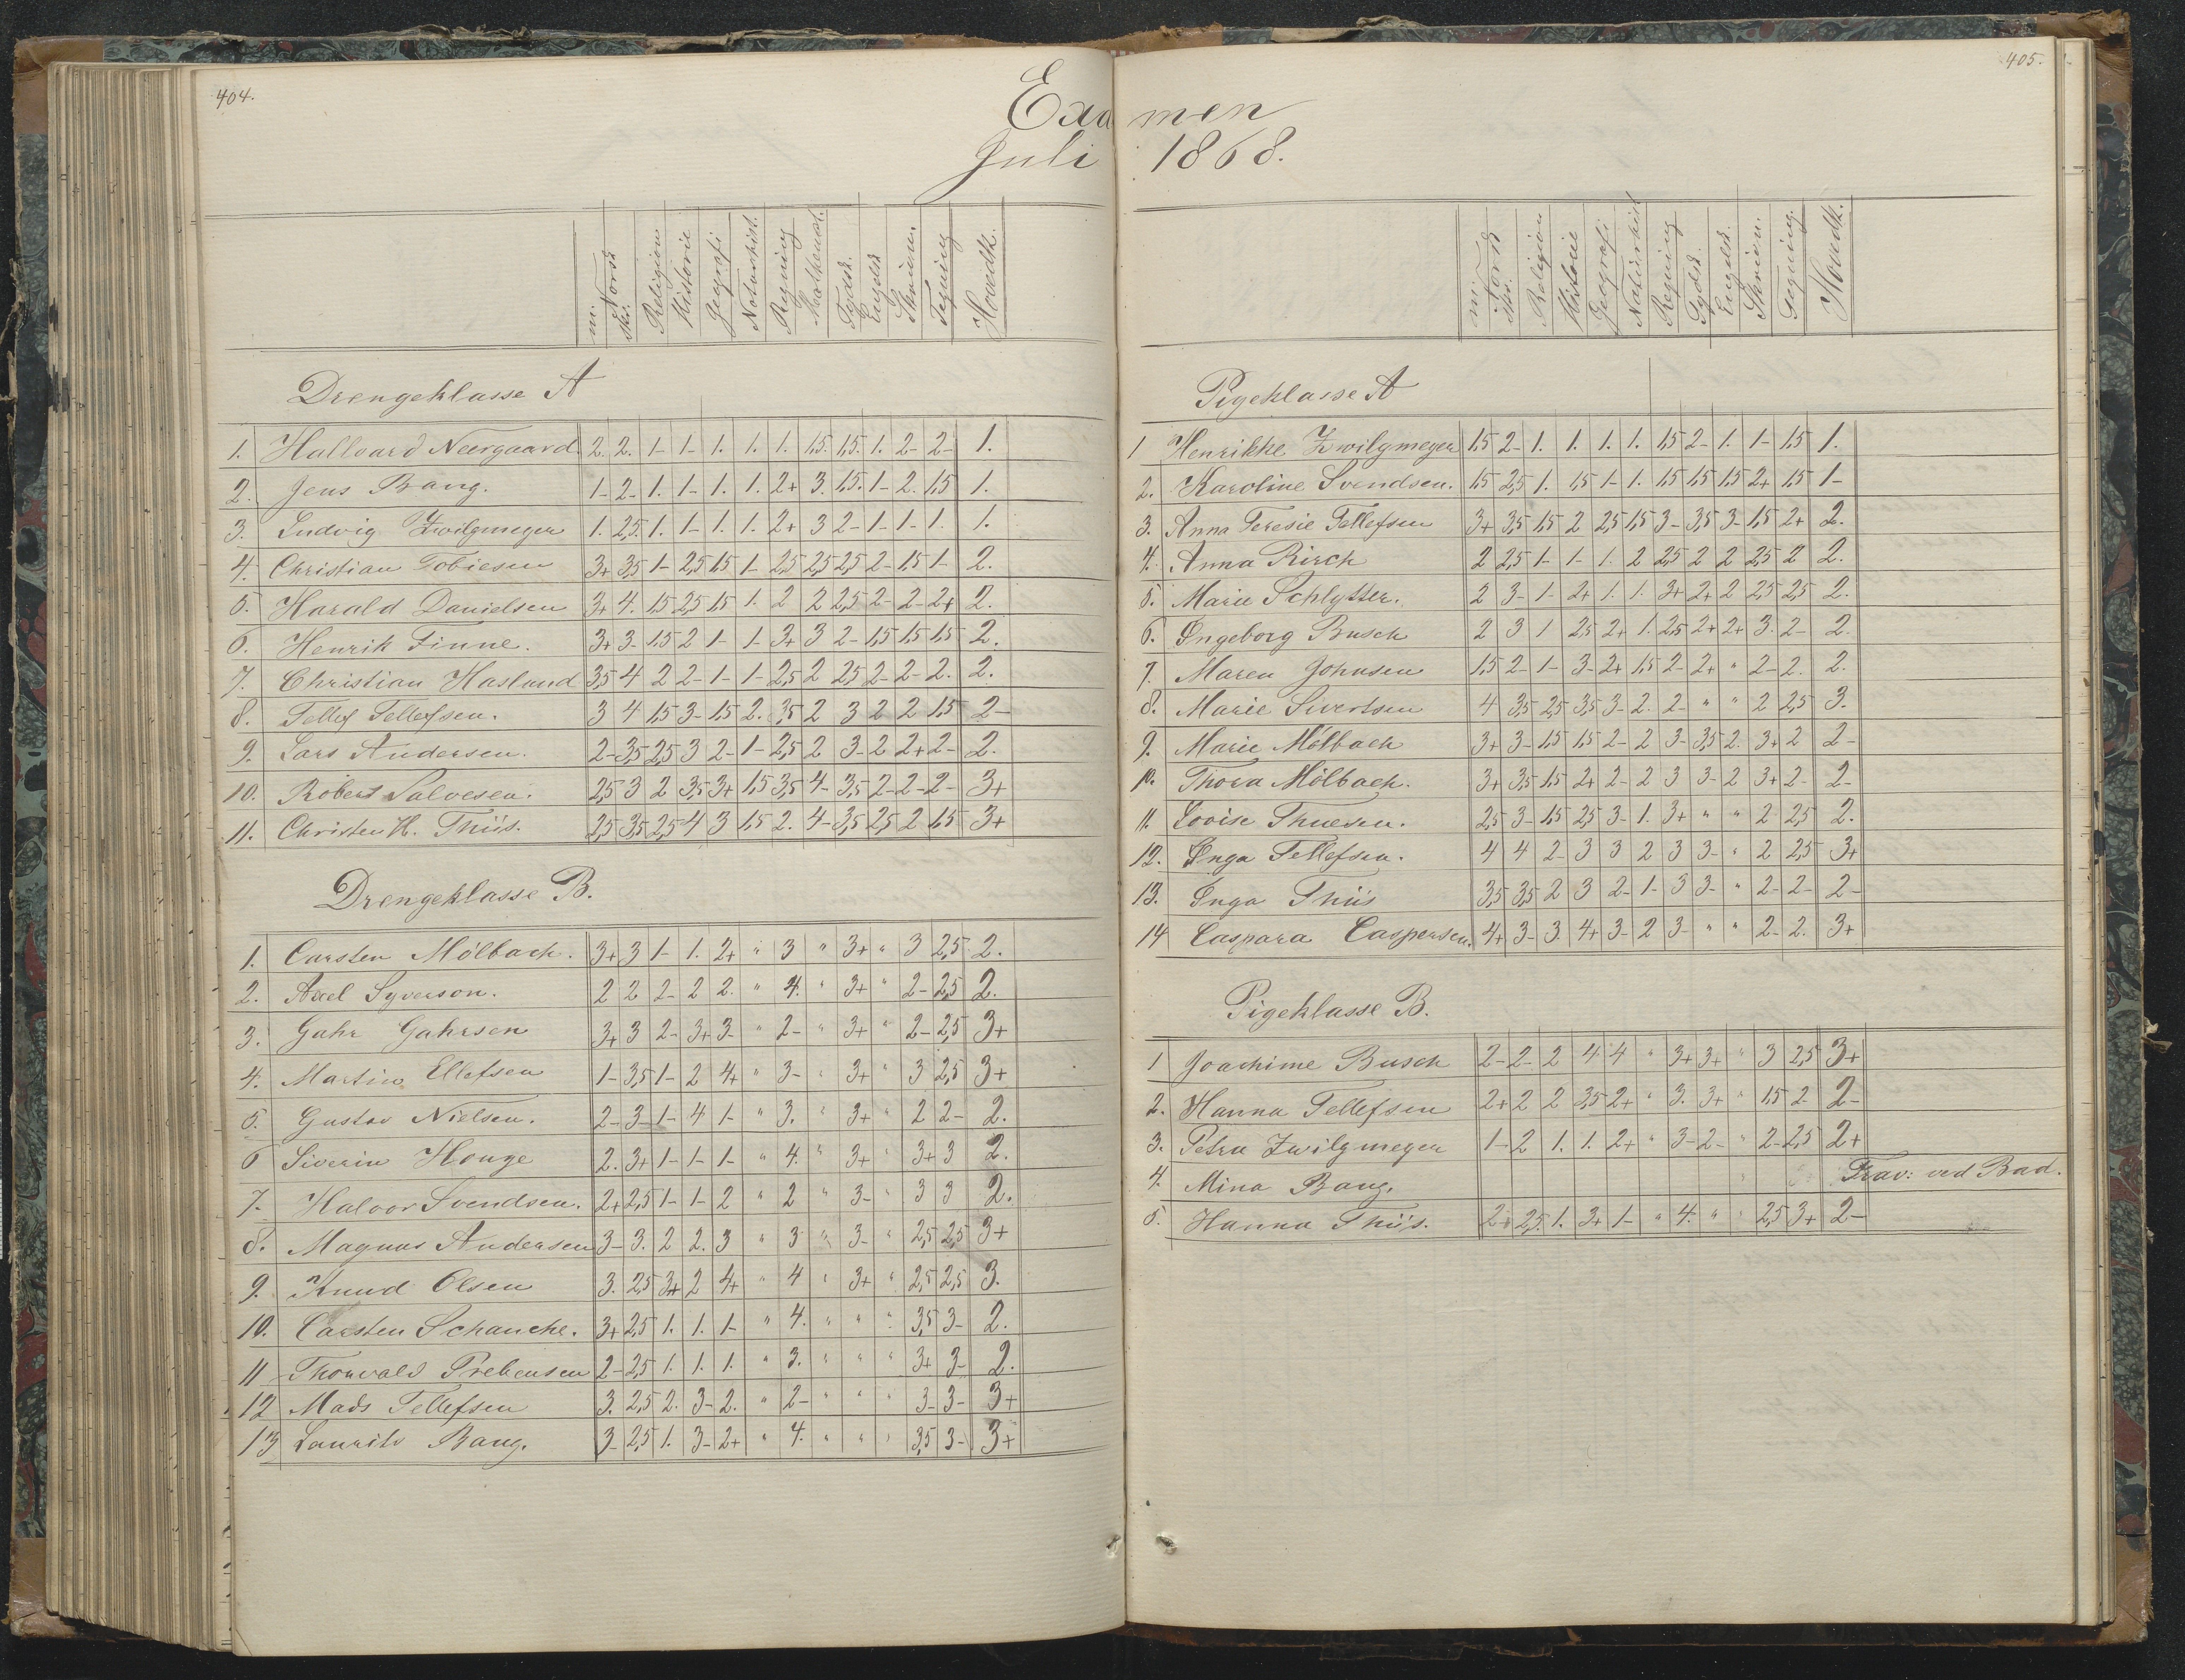 404.
Examen
Juli 1868.
m. Norsk skr. Religion Historie Geografi Naturhist. Regning Mathemat. Tydsk Engelsk Skrivn. Tegning Hovedk.
Drengeklasse A
1. Hallvard Neergaard 2. 2. 1- 1- 1. 1. 1. 1,5. 1,5. 1. 2- 2- 1.
2. Jens Bang. 1- 2- 1. 1- 1. 1. 2+ 3. 1,5. 1- 2. 1,5 1.
3. Ludvig Zwilgmeyer 1. 2,5. 1. 1- 1. 1. 2+ 3 2- 1- 1- 1. 1.
4. Christian Tobiesen 3+ 3,5 1- 2,5 1,5 1- 2,5 2,5 2,5 2- 1,5 1- 2.
5. Harald Danielsen 3+ 4. 1,5 2,5 1,5 1. 2 2 2,5 2- 2- 2+ 2.
6. Henrik Finne. 3+ 3- 1,5 2 1- 1- 3+ 3 2- 1,5 1,5 1,5 2.
7. Christian Hasland 3,5 4 2 2- 1- 1- 2,5 2 2,5 2- 2- 2. 2.
8. Tellef Tellefsen. 3 4 1,5 3- 1,5 2. 3,5 2 3 2 2 1,5 2-
9. Lars Andersen. 2- 3,5 2,5 3 2- 1- 2,5 2 3- 2 2+ 2- 2.
10. Robert Salvesen. 2,5 3 2 3,5 3+ 1,5 3,5 4- 3,5 2- 2- 2- 3+
11. Christen H. Thiis. 2,5 3,5 2,5 4 3 1,5 2. 4- 3,5 2,5 2 1,5 3+
Drengeklasse B.
1. Carsten Mölbach. 3+ 3 1- 1. 2+ " 3 " 3+ " 3 2,5 2.
2. Axel Syverson. 2 2 2- 2 2. " 4. " 3+ " 2- 2,5 2.
3. Gahr Gahrsen 3+ 3 2- 3+ 3- " 2- " 3+ " 2- 2,5 3+
4. Martin Ellefsen 1- 3,5 1- 2 4+ " 3- " 3+ " 3 2,5 3+
5. Gustav Nielsen. 2- 3- 1- 4 1- " 3. " 3+ " 2 2- 2.
6 Siverin Houge 2. 3+ 1- 1- 1- " 4. " 3+ " 3+ 3 2.
7. Halvor Svendsen. 2+ 2,5 1- 1- 2 " 2 " 3- " 3 3 2.
8. Magnus Andersen 3- 3. 2 2. 3 " 3 " 3- " 2,5 2,5 3+
9. Knud Olsen 3. 2,5 3+ 2 4+ " 4 " 3+ " 2,5 2,5 3.
10. Carsten Schanche. 3+ 2,5 1. 1. 1- " 4. " " " 3,5 3- 2.
11 Thorvald Prebensen 2- 2,5 1. 1. 1. " 3. " " " 3+ 3- 2.
12 Mads Tellefsen 3. 2,5 2. 3- 2. " 2- " " " 3- 3- 3+
13 Laurits Bang. 3- 2,5 1. 3- 2+ " 4. " " " 3,5 3- 3+
405.
m. Norsk skr. Religion Historie Geografi Naturhist Regning Tydsk. Engelsk. Skrivn. Tegning. Hovedk.
Pigeklasse A
1 Henrikke Zwilgmeyer 1,5 2- 1. 1. 1. 1. 1,5 2- 1. 1- 1,5 1.
2. Karoline Svendsen. 1,5 2,5 1. 1,5 1- 1. 1,5 1,5 1,5 2+ 1,5 1-
3. Anna Teresie Tellefsen 3+ 3,5 1,5 2 2,5 1,5 3- 3,5 3- 1,5 2+ 2.
4. Anna Birch 2 2,5 1- 1- 1. 2 2,5 2 2 2,5 2 2.
5. Marie Schlytter. 2 3- 1- 2+ 1. 1. 3+ 2+ 2 2,5 2,5 2.
6. Ingeborg Busch 2 3 1 2,5 2+ 1. 2,5 2+ 2+ 3. 2- 2.
7. Maren Johnsen 1,5 2- 1- 3- 2+ 1,5 2- 2+ " 2- 2. 2.
8. Marie Sivertsen 4 3,5 2,5 3,5 3- 2. 2- " " 2 2,5 3.
9. Marie Mölbach 3+ 3- 1,5 1,5 2- 2 3- 3,5 2. 3+ 2 2-
10. Thora Mölbach. 3+ 3,5 1,5 2+ 2- 2 3 3- 2 3+ 2- 2-
11. Lovise Thuesen. 2,5 3- 1,5 2,5 3- 1. 3+ " " 2 2,5 2.
12. Inga Tellefsen. 4 4 2- 3 3 2 3 3- " 2 2,5 3+
13. Inga Thiis 3,5 3,5 2 3 2- 1- 3 3- " 2- 2- 2-
14 Caspara Caspersen. 4+ 3- 3. 4+ 3- 2 3- " " 2- 2. 3+
Pigeklasse B.
1 Joachime Busch 2- 2- 2 4. 4 " 3+ 3+ " 3 2,5 3+
2. Hanna Tellefsen 2+ 2 2 3,5 2+ " 3. 3+ " 1,5 2- 2-
3. Petra Zwilgmeyer 1- 2 1. 1. 2+ " 3- 2- " 2- 2,5 2+
4. Mina Bang. Frav: ved Bad.
5. Hanna Thiis. 2+ 2,5 1. 3+ 1- " 4. " " 2,5 3+ 2-